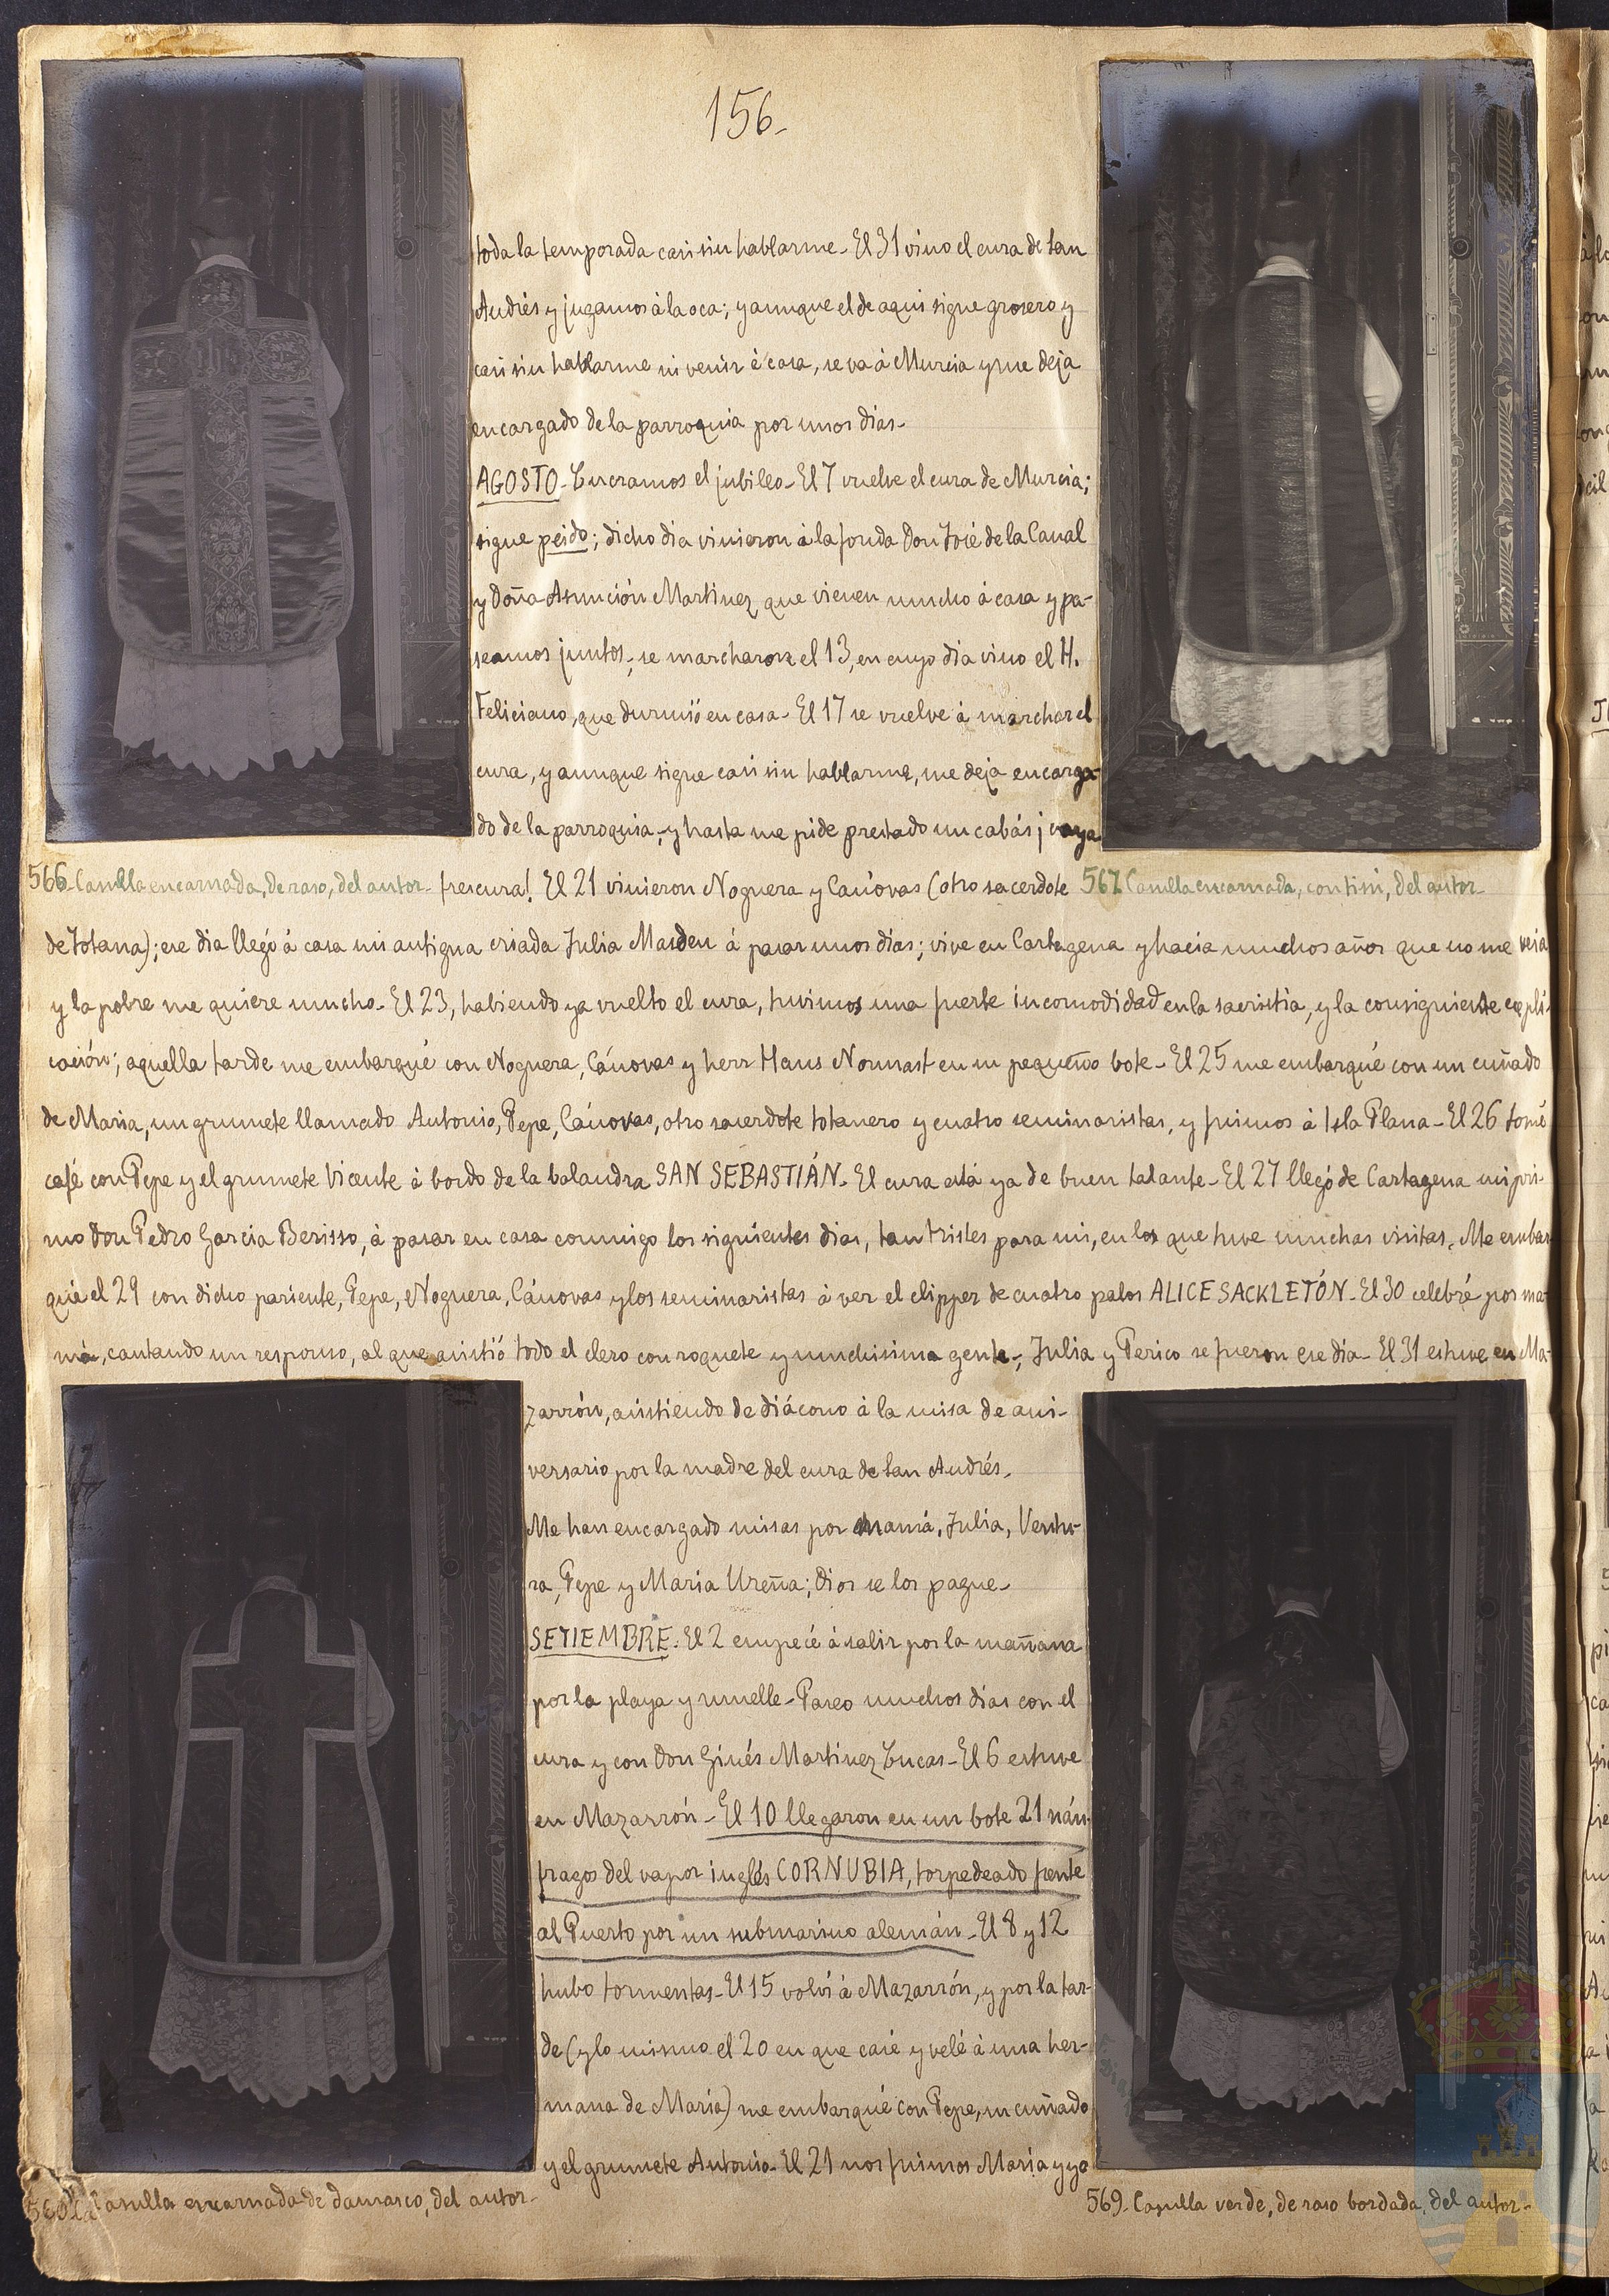 156-
toda la temporada casi sin hablarme- El 31 vino el cura de San
Andrés y jugamos á la oca; y aunque el de aqui sigue grosero y
casi sin hablarme ni venir á casa, se va á Murcia y me deja
encargado de la parroquia por unos dias-
AGOSTO- Lucramos el jubileo- El 7 vuelve el cura de Murcia;
sigue peido; dicho dia vinieron á la fonda Don José de la Canal
y Doña Asunción Martinez, que vienen mucho á casa y pa-
seamos juntos; se marcharon el 13, en cuyo dia vino el H.
Feliciano, que durmió en casa- El 17 se vuelve á marchar el
cura, y aunque sigue casi sin hablarme, me deja encarga-
do de la parroquia, y hasta me pide prestado un cabás ¡vaya
566- Casulla encarnada, de raso, del autor-
frescura! El 21 vinieron Noguera y Cánovas (otro sacerdote
567 Casulla encarnada, con tisú, del autor-
de Totana); ese dia llegó á casa mi antigua criada Julia Masdeu á pasar unos días; vive en Cartagena y hacia muchos años que no me veia
y la pobre me quiere mucho- El 23, habiendo ya vuelto el cura, tuvimos una fuerte incomodidad en la sacristia, y la consiguiente expli-
cación; aquella tarde me embarqué con Noguera, Cánovas y herr Hans Normast en su pequeño bote- El 25 me embarqué con un cuñado
de Maria, un grumete llamado Antonio, Pepe, Cánovas, otro sacerdote totanero y cuatro seminaristas, y fuimos á Isla Plana- El 26 tomé
café con Pepe y el grumete Vicente á bordo de la balandra SAN SEBASTIÁN- El cura está ya de buen talante- El 27 llegó de Cartagena mi pri-
mo Don Pedro Garcia Berisso, á pasar en casa conmigo los siguientes dias, tan tristes para mi, en los que tuve muchas visitas. Me embar-
qué el 29 con dicho pariente, Pepe, Noguera, Cánovas y los seminaristas á ver el clipper de cuatro palos ALICE SACKLETÓN- El 30 celebré por ma-
má, cantando un responso, al que asistió todo el clero con roquete y muchisima gente; Julia y Perico se fueron ese dia- El 31 estuve en Ma-
zarrón, asistiendo de diácono á la misa de ani-
versario por la madre del cura de San Andrés.
Me han encargado misas por mamá, Julia, Ventu-
ra, Pepe y Maria Ureña; Dios se los pague-
SETIEMBRE. El 2 empecé á salir por la mañana
por la playa y muelle- Paseo muchos dias con el
cura y con Don Ginés Martinez Lucas- El 6 estuve
en Mazarrón- El 10 llegaron en un bote 21 náu-
fragos del vapor inglés CORNUBIA, torpedeado frente
al Puerto por un submarino alemán- El 8 y 12
hubo tormentas- El 15 volví á Mazarrón, y por la tar-
de (y lo mismo el 20 en que casé y velé á una her-
mana de María) me embarqué con Pepe, su cuñado
y el grumete Antonio- El 21 nos fuimos María y yo
Casulla encarnada de damasco, del autor-
569- Casulla verde, de raso bordada, del autor-